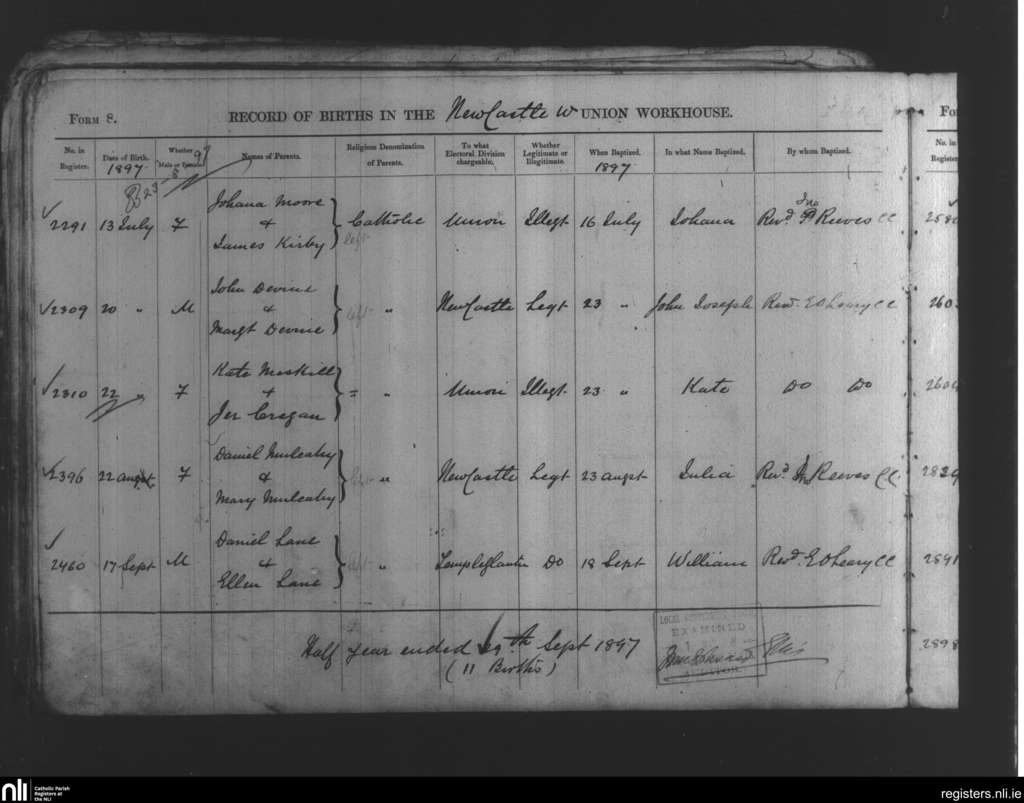 FORM 8.
RECORD OF BIRTHS IN THE NewCastle W UNION WORKHOUSE.
No. in Register. Date of Birth. 1897 Whether Male or Female Names of Parents. Religious Denomination of Parents. To what Electoral Division chargeable. Whether Legitimate or Illegitimate. When Baptized. 1897 In what Name Baptized. By whom Baptized.
No. in
Register
Johana Moore
2291 13 July F & Catholic Union Illegt 16 July Johana Revd Jno Reeves CC
left
James Kirby
John Devine
2309 20 " M & left " NewCastle Legt 23 " John Joseph Revd. E O Leary CC
Margt Devine
Kate Meskill
2310 22 " F & = " Union Illegt. 23 " Kate Do Do
Jer Cregan
Daniel Mulcahy
2396 22 augst F & " NewCastle Legt 23 augst Julia Revd Jno Reeves CC
Mary Mulcahy
Daniel Lane
2460 17 Sept M & left " Templeglantin Do 18 Sept William Revd. E O Leary CC
Ellen Lane
Half year ended Sept 1897
(11 Births)
EXAMINED
2829
2841
2898
nli
Catholic Parish
Registers at
the NLI
registers.nli.ie